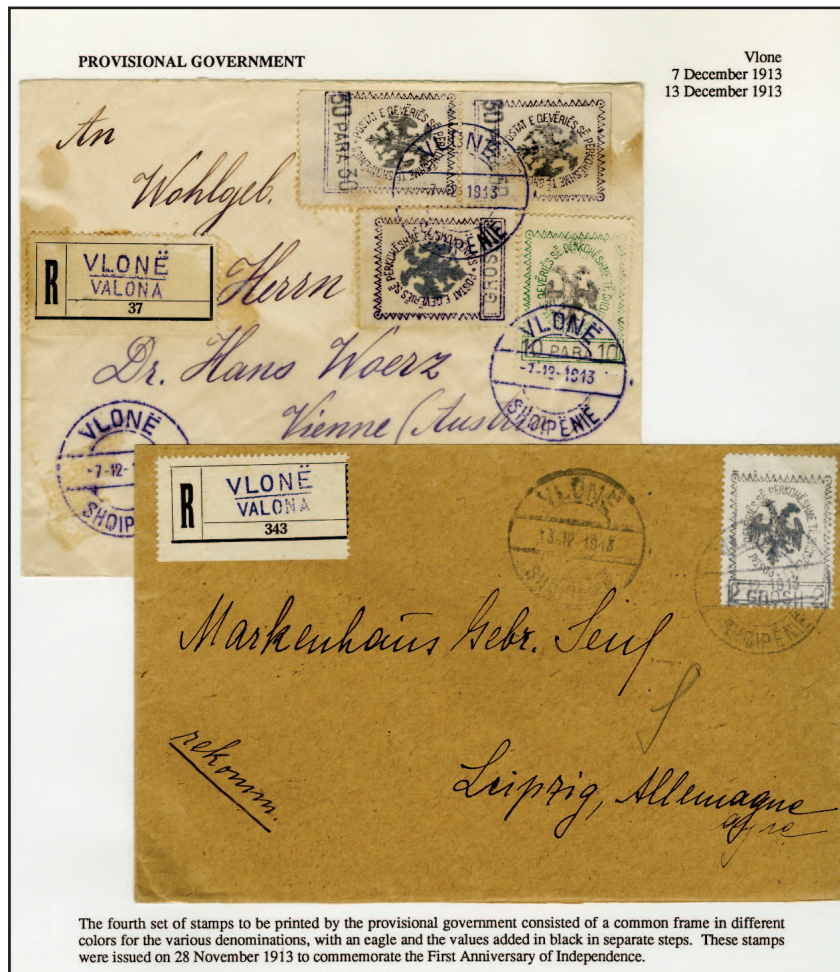 PROVISIONAL GOVERNMENT
Vlone
7 December 1913
13 December 1913
An
Wohlgeb.
Herrn
Dr. Hans Woerz
Vienne (Austri
R
VLONË
VALONA
37
30 PARA 30
POSTAT E QEVERIËS SË PËRKOHËSHME TË
POSTAT E QEVERIËS SË PËRKOHËSHME TË
VLONË
1913
POSTAT E QEVERIËS SË PËRKOHËSHME TË
GROSH
QEVERIËS SË PËRKOHËSHME TË
10 PARA 10
VLONË
-7-12-1913
SHQIPËNIË
VLONË
-7-12-
SHQIP
R
VLONË
VALONA
343
VLONË
13-12-1913
SË PËRKOHËSHME
2 GROSH 2
12-1913
SHQIPËNIË
Markenhaus Gebr. Senf
rekomm.
Leipzig, Allemagne
The fourth set of stamps to be printed by the provisional government consisted of a common frame in different
colors for the various denominations, with an eagle and the values added in black in separate steps. These stamps
were issued on 28 November 1913 to commemorate the First Anniversary of Independence.